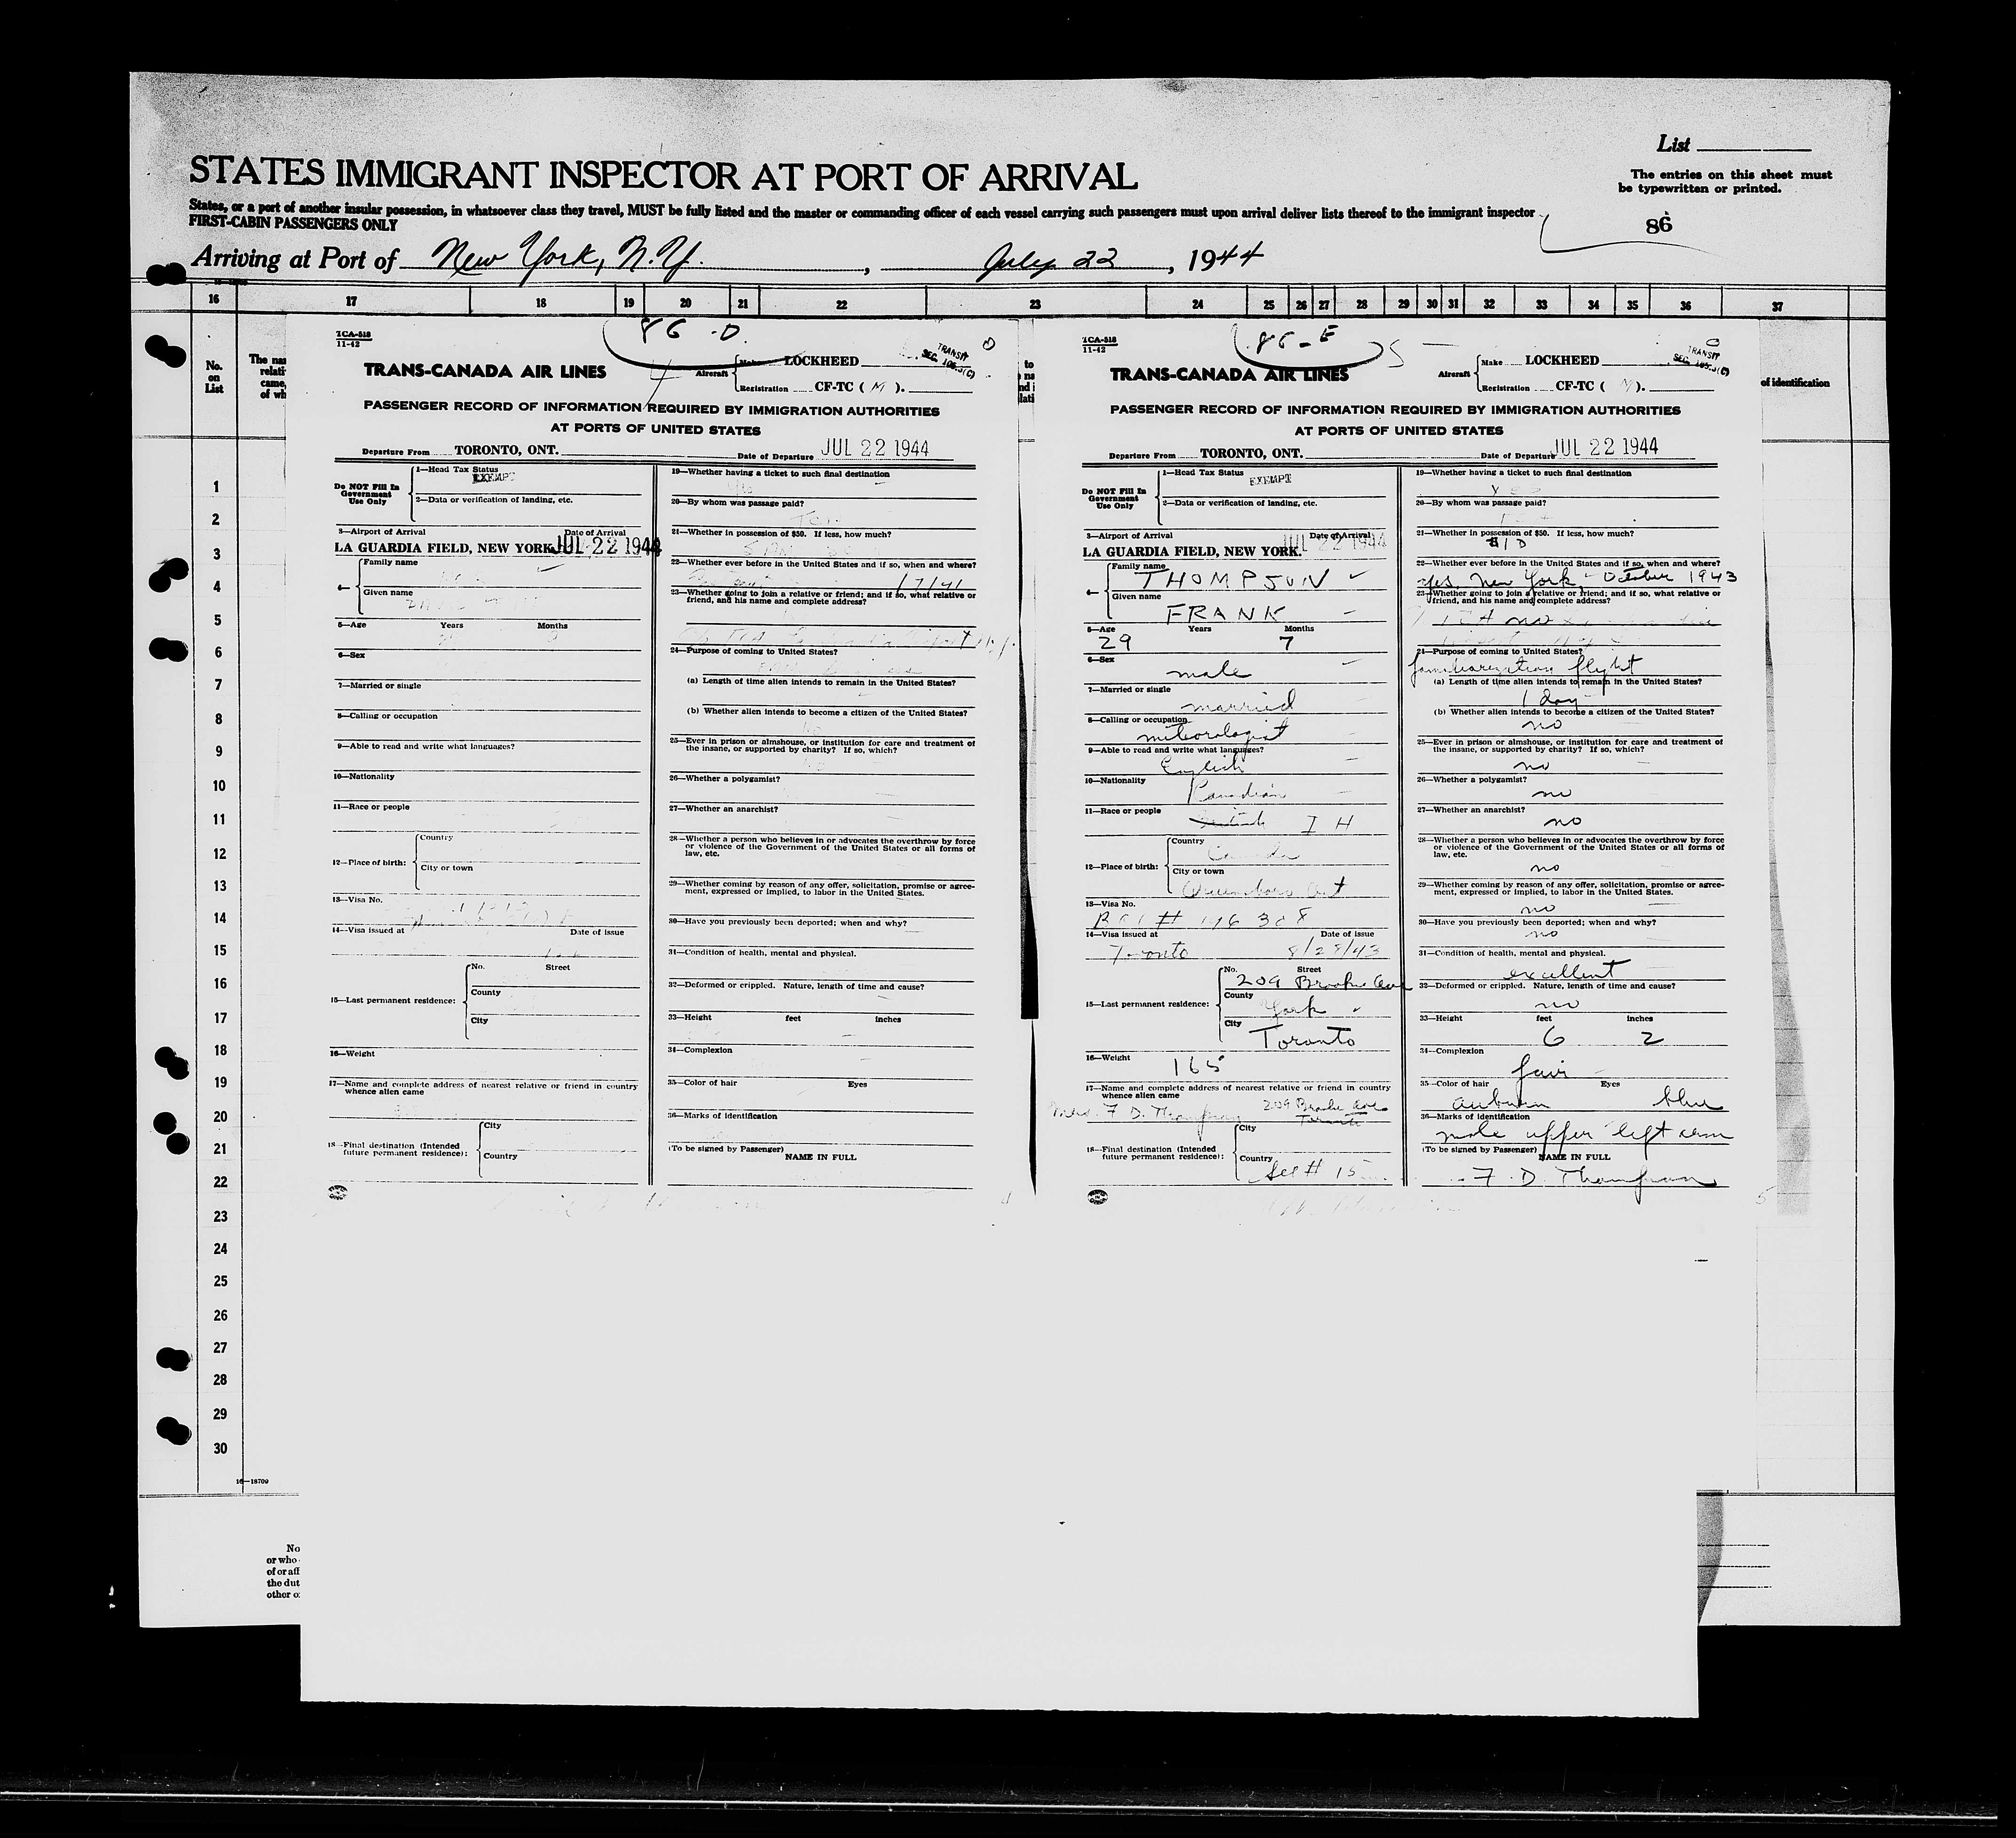 List
STATES IMMIGRANT INSPECTOR AT PORT OF ARRIVAL
The entries on this sheet must
be typewritten or printed.
States, or a port of another insular possession, in whatsoever class they travel, MUST be fully listed and the master or commanding officer of each vessel carrying such passengers must upon arrival deliver lists thereof to the immigrant inspector
FIRST-CABIN PASSENGERS ONLY
86
Arriving at Port of New York, N.Y. , July 22 , 1944
16 17 18 19 20 21 22 23 24 25 26 27 28 29 30 31 32 33 34 35 36 37
No.
on
List
The nam
relati
came,
of wh
of identification
1
2
3
4
5
6
7
8
9
10
11
12
13
14
15
16
17
18
19
20
21
22
23
24
25
26
27
28
29
30
16—18709
No
or who
of or aff
the dut
other o
TCA-518
11-42
86-D
TRANSIT
TRANS-CANADA AIR LINES
Aircraft
Make LOCKHEED
Registration CF-TC ( M ).
PASSENGER RECORD OF INFORMATION REQUIRED BY IMMIGRATION AUTHORITIES
AT PORTS OF UNITED STATES
Departure From TORONTO, ONT. Date of Departure JUL 22 1944
Do NOT Fill In
Government
Use Only
1—Head Tax Status
EXEMPT
2—Data or verification of landing, etc.
3—Airport of Arrival Date of Arrival
LA GUARDIA FIELD, NEW YORK JUL 22 1944
4— Family name
Given name
5—Age Years Months
6—Sex
7—Married or single
8—Calling or occupation
9—Able to read and write what languages?
10—Nationality
11—Race or people
12—Place of birth: Country
City or town
13—Visa No.
14—Visa issued at Date of issue
15—Last permanent residence: No. Street
County
City
16—Weight
17—Name and complete address of nearest relative or friend in country
whence alien came
18—Final destination (Intended
future permanent residence): City
Country
19—Whether having a ticket to such final destination
20—By whom was passage paid?
21—Whether in possession of $50. If less, how much?
22—Whether ever before in the United States and if so, when and where?
1/7/41
23—Whether going to join a relative or friend; and if so, what relative or
friend, and his name and complete address?
24—Purpose of coming to United States?
(a) Length of time alien intends to remain in the United States?
(b) Whether alien intends to become a citizen of the United States?
25—Ever in prison or almshouse, or institution for care and treatment of
the insane, or supported by charity? If so, which?
26—Whether a polygamist?
27—Whether an anarchist?
28—Whether a person who believes in or advocates the overthrow by force
or violence of the Government of the United States or all forms of
law, etc.
29—Whether coming by reason of any offer, solicitation, promise or agree-
ment, expressed or implied, to labor in the United States.
30—Have you previously been deported; when and why?
31—Condition of health, mental and physical.
32—Deformed or crippled. Nature, length of time and cause?
33—Height feet inches
34—Complexion
35—Color of hair Eyes
36—Marks of identification
(To be signed by Passenger)
NAME IN FULL
TCA-518
11-42
86-E
5
TRANSIT
TRANS-CANADA AIR LINES
Aircraft
Make LOCKHEED
Registration CF-TC ( M ).
PASSENGER RECORD OF INFORMATION REQUIRED BY IMMIGRATION AUTHORITIES
AT PORTS OF UNITED STATES
Departure From TORONTO, ONT. Date of Departure JUL 22 1944
Do NOT Fill In
Government
Use Only
1—Head Tax Status
EXEMPT
2—Data or verification of landing, etc.
3—Airport of Arrival Date of Arrival
LA GUARDIA FIELD, NEW YORK. JUL 22 1944
4— Family name
THOMPSON
Given name
FRANK
5—Age Years Months
29 7
6—Sex
male
7—Married or single
married
8—Calling or occupation
meteorologist
9—Able to read and write what languages?
English
10—Nationality
Canadian
11—Race or people
I H
12—Place of birth: Country
Canada
City or town
Ont
13—Visa No.
14—Visa issued at Date of issue
Toronto 8/28/43
15—Last permanent residence: No. Street
209 Brooke Ave
County
York
City
Toronto
16—Weight
165
17—Name and complete address of nearest relative or friend in country
whence alien came
Mrs. F D. Thompson 209 Brooke Ave
Toronto
18—Final destination (Intended
future permanent residence): City
Country
See # 15
19—Whether having a ticket to such final destination
yes
20—By whom was passage paid?
21—Whether in possession of $50. If less, how much?
$10
22—Whether ever before in the United States and if so, when and where?
yes, New York - October 1943
23—Whether going to join a relative or friend; and if so, what relative or
friend, and his name and complete address?
no
24—Purpose of coming to United States?
familiarization flight
(a) Length of time alien intends to remain in the United States?
1 day
(b) Whether alien intends to become a citizen of the United States?
no
25—Ever in prison or almshouse, or institution for care and treatment of
the insane, or supported by charity? If so, which?
no
26—Whether a polygamist?
no
27—Whether an anarchist?
no
28—Whether a person who believes in or advocates the overthrow by force
or violence of the Government of the United States or all forms of
law, etc.
no
29—Whether coming by reason of any offer, solicitation, promise or agree-
ment, expressed or implied, to labor in the United States.
no
30—Have you previously been deported; when and why?
no
31—Condition of health, mental and physical.
excellent
32—Deformed or crippled. Nature, length of time and cause?
no
33—Height feet inches
6 2
34—Complexion
fair
35—Color of hair Eyes
auburn blue
36—Marks of identification
mole upper left arm
(To be signed by Passenger)
NAME IN FULL
F. D. Thompson